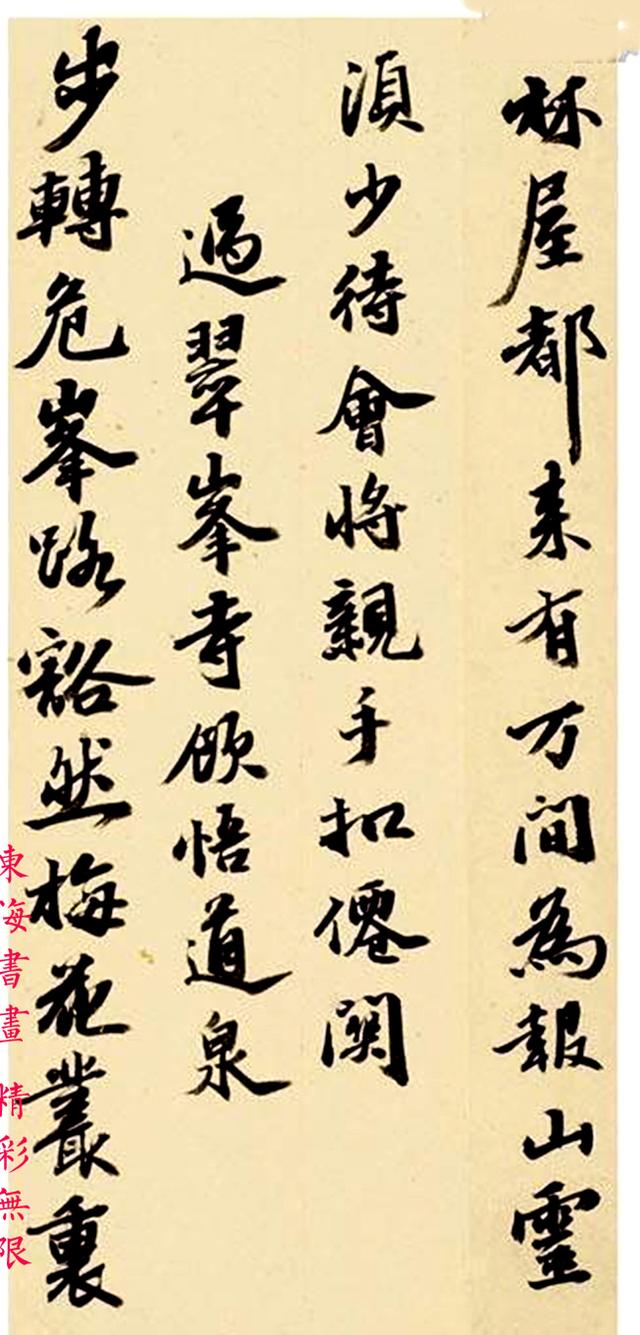 林屋都来有万間為報山靈
湏少待會將親手扣僊関
過翠峯寺飲悟道泉
步轉危峯路豁然梅花叢裏
東海書畫 精彩無限